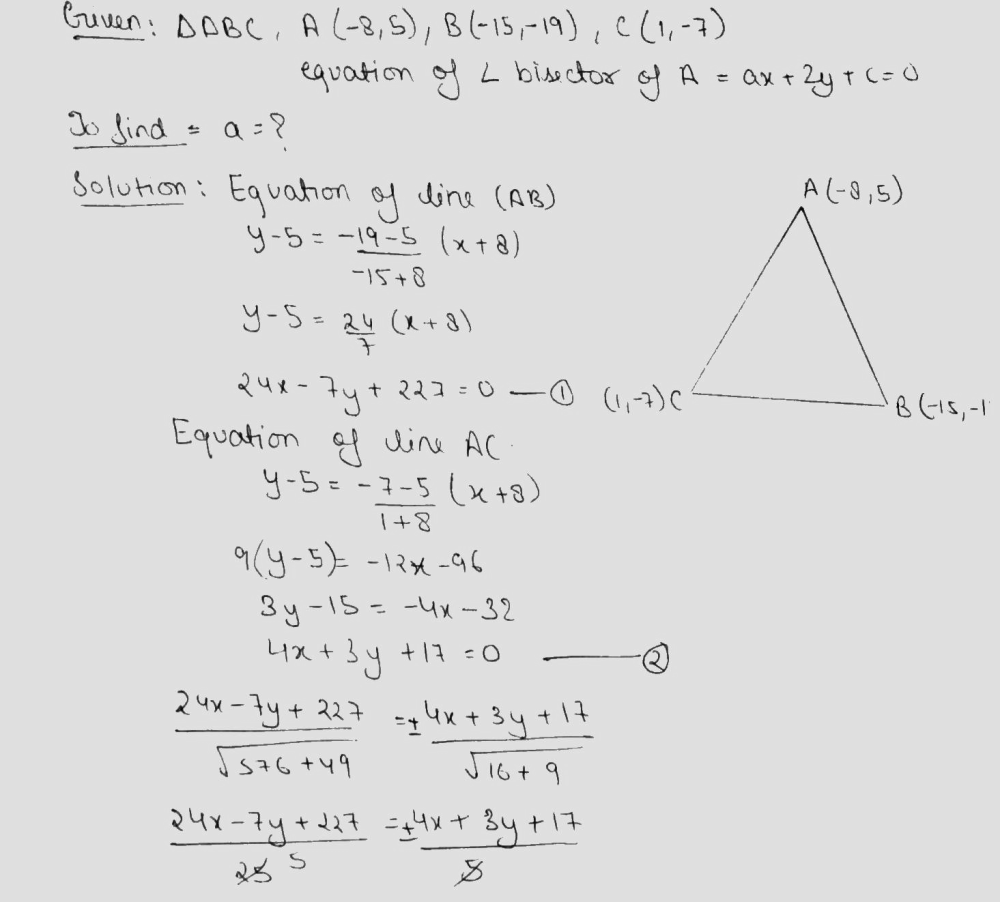 Given: ΔABC, A(-8,5), B(-15,-19), C(1,-7)
equation of ∠ bisector of A = ax + 2y + c = 0
To find = a = ?
Solution: Equation of line (AB)
A(-8,5)
y-5 = -19-5/-15+8 (x+8)
y-5 = 24/7 (x+8)
24x - 7y + 227 = 0 — ①
(1,-7)C
B(-15,-1
Equation of line AC.
y-5 = -7-5/1+8 (x+8)
9(y-5) = -12x -96
3y -15 = -4x -32
4x + 3y + 17 = 0 — ②
24x - 7y + 227/√576+49 = ± 4x + 3y + 17/√16+9
24x - 7y + 227/25 5 = ± 4x + 3y + 17/5